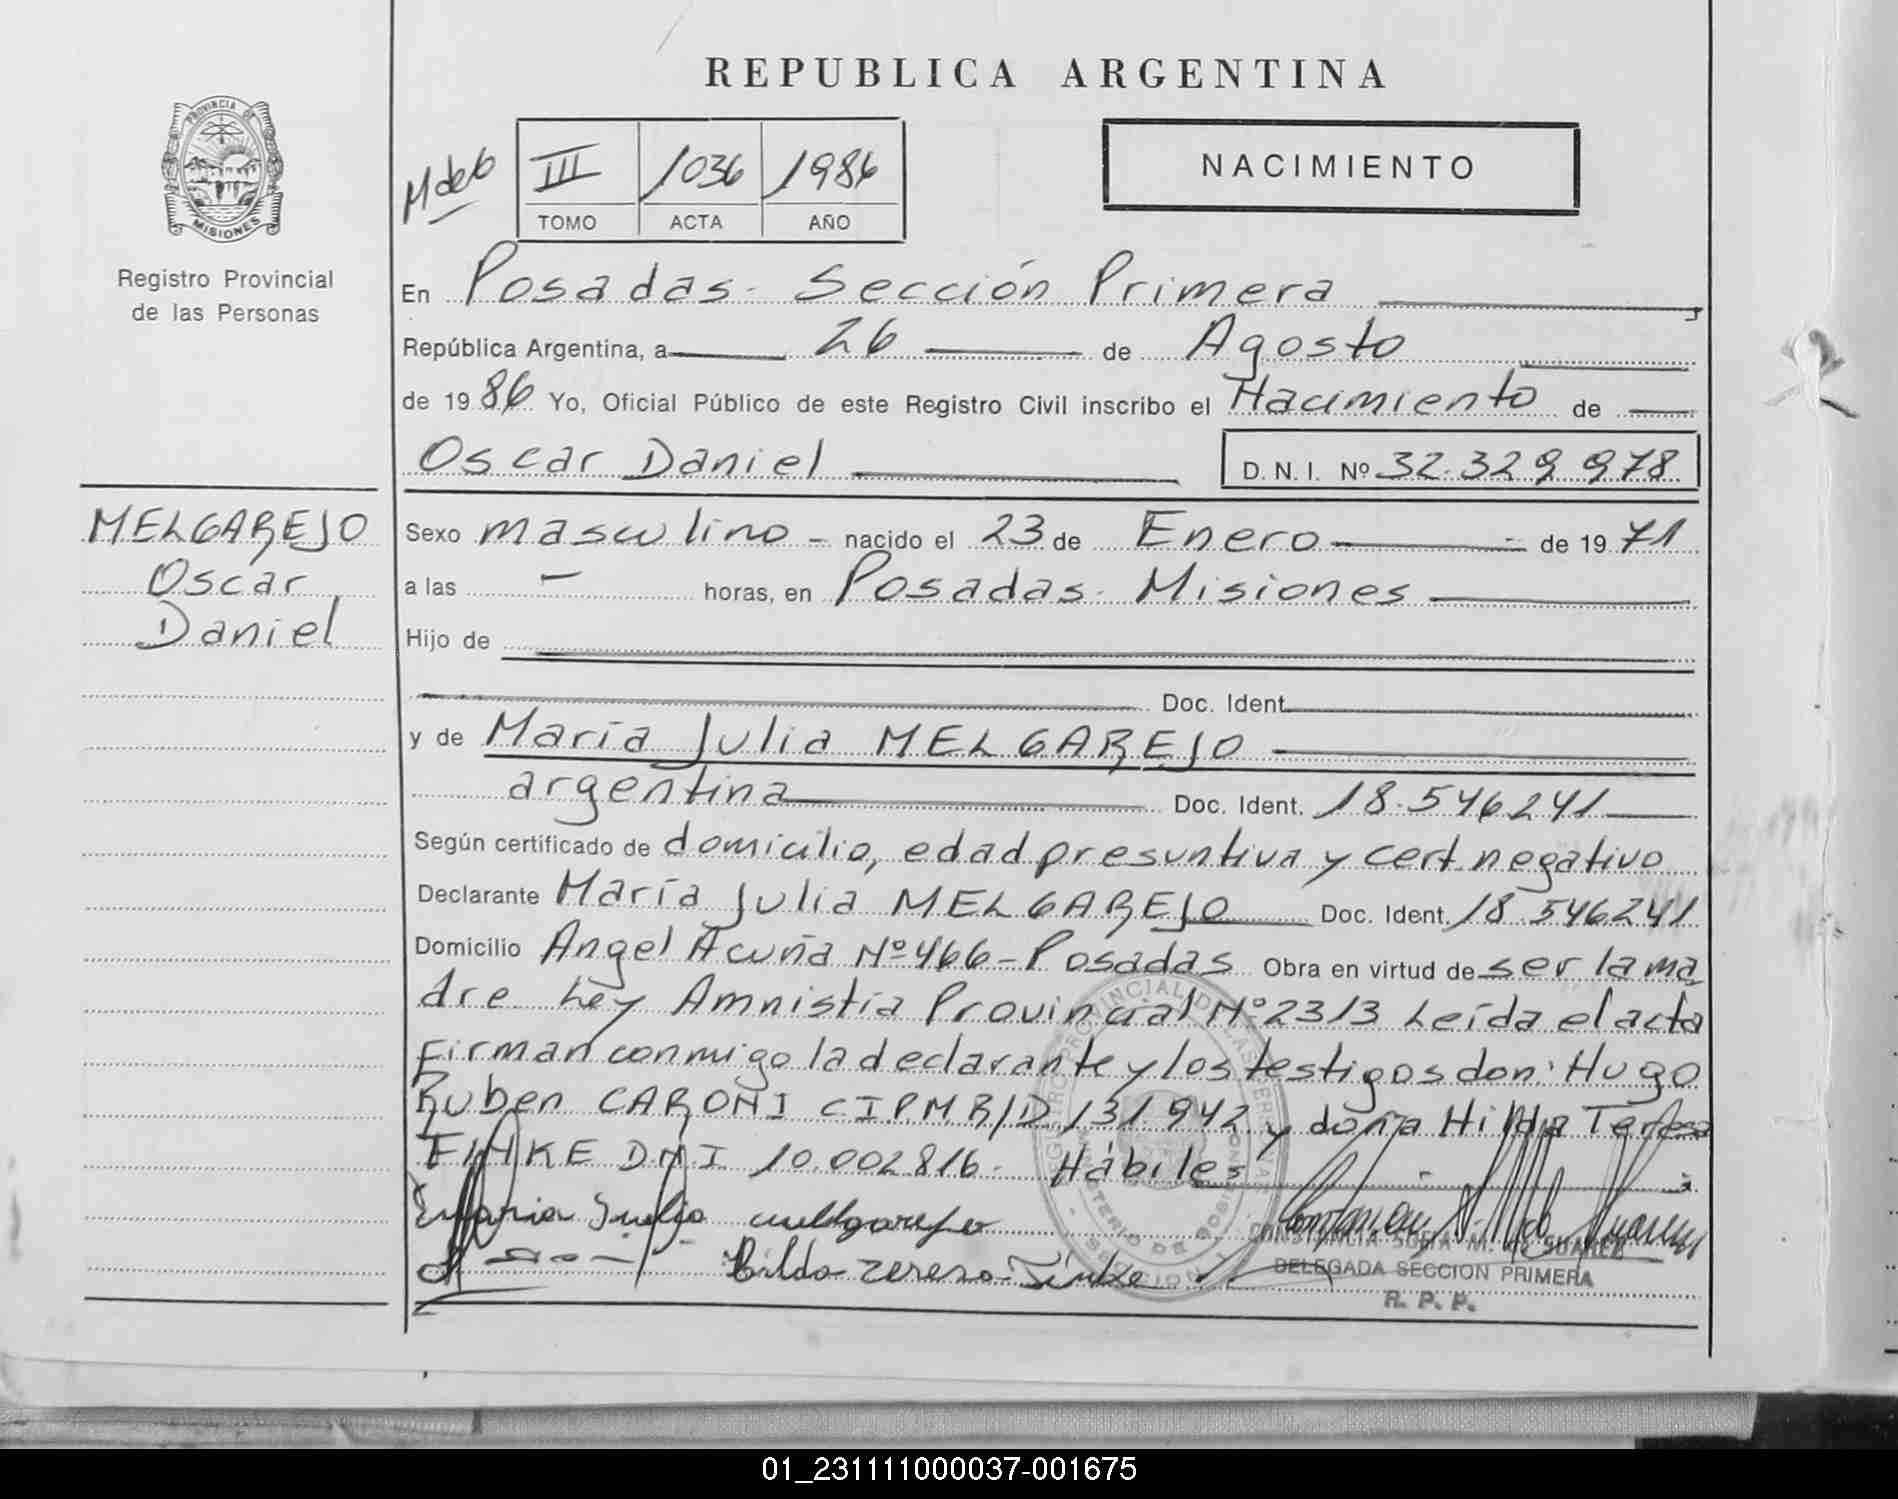 REPUBLICA ARGENTINA
PROVINCIA DE
MISIONES
Registro Provincial
de las Personas
III 1036 1986
TOMO ACTA AÑO
NACIMIENTO
En Posadas- Sección Primera
República Argentina, a 26 de Agosto
de 1986 Yo, Oficial Público de este Registro Civil inscribo el Nacimiento de
Oscar Daniel D. N. I. Nº 32.329.978
MELGAREJO
Oscar
Daniel
Sexo masculino - nacido el 23 de Enero de 1971
a las - horas, en Posadas- Misiones
Hijo de
Doc. Ident.
y de María Julia MELGAREJO
argentina Doc. Ident. 18.546241
Según certificado de domicilio, edad presuntiva y cert. negativo
Declarante María Julia MELGAREJO Doc. Ident. 18.546241
Domicilio Angel Acuña Nº 466 - Posadas Obra en virtud de ser la ma
dre Ley Amnistía Provincial Nº 2313 Leída el acta
Firman conmigo la declarante y los testigos don: Hugo
Ruben CARONI CIPM R/D 131.942 y doña Hilda Teresa
FINKE DNI 10.002816- Hábiles
Maria Julia Melgarejo
Hilda Teresa Finke
CONSTANCIA SOFIA M. de SUAREZ
DELEGADA SECCION PRIMERA
R. P. P.
01_231111000037-001675